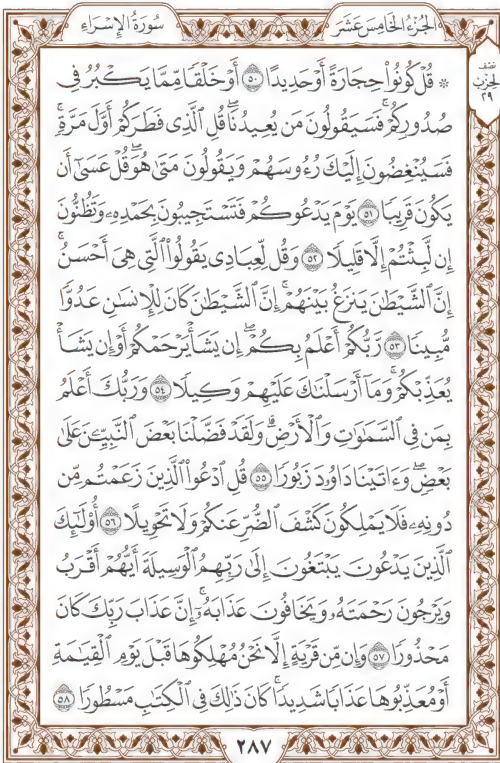 سُورَةُ الإِسْرَاءِ
الجُزْءُ الخَامِسَ عَشَرَ
نِصْفُ
الحِزْبِ
٢٩
* قُلْ كُونُوا۟ حِجَارَةً أَوْ حَدِيدًا ٥٠ أَوْ خَلْقًا مِّمَّا يَكْبُرُ فِى
صُدُورِكُمْۚ فَسَيَقُولُونَ مَن يُعِيدُنَاۖ قُلِ ٱلَّذِى فَطَرَكُمْ أَوَّلَ مَرَّةٍۚ
فَسَيُنْغِضُونَ إِلَيْكَ رُءُوسَهُمْ وَيَقُولُونَ مَتَىٰ هُوَۖ قُلْ عَسَىٰٓ أَن
يَكُونَ قَرِيبًا ٥١ يَوْمَ يَدْعُوكُمْ فَتَسْتَجِيبُونَ بِحَمْدِهِۦ وَتَظُنُّونَ
إِن لَّبِثْتُمْ إِلَّا قَلِيلًا ٥٢ وَقُل لِّعِبَادِى يَقُولُوا۟ ٱلَّتِى هِىَ أَحْسَنُۚ
إِنَّ ٱلشَّيْطَٰنَ يَنزَغُ بَيْنَهُمْۚ إِنَّ ٱلشَّيْطَٰنَ كَانَ لِلْإِنسَٰنِ عَدُوًّا
مُّبِينًا ٥٣ رَّبُّكُمْ أَعْلَمُ بِكُمْۖ إِن يَشَأْ يَرْحَمْكُمْ أَوْ إِن يَشَأْ
يُعَذِّبْكُمْۚ وَمَآ أَرْسَلْنَٰكَ عَلَيْهِمْ وَكِيلًا ٥٤ وَرَبُّكَ أَعْلَمُ
بِمَن فِى ٱلسَّمَٰوَٰتِ وَٱلْأَرْضِۗ وَلَقَدْ فَضَّلْنَا بَعْضَ ٱلنَّبِيِّـۧنَ عَلَىٰ
بَعْضٍۖ وَءَاتَيْنَا دَاوُۥدَ زَبُورًا ٥٥ قُلِ ٱدْعُوا۟ ٱلَّذِينَ زَعَمْتُم مِّن
دُونِهِۦ فَلَا يَمْلِكُونَ كَشْفَ ٱلضُّرِّ عَنكُمْ وَلَا تَحْوِيلًا ٥٦ أُو۟لَٰٓئِكَ
ٱلَّذِينَ يَدْعُونَ يَبْتَغُونَ إِلَىٰ رَبِّهِمُ ٱلْوَسِيلَةَ أَيُّهُمْ أَقْرَبُ
وَيَرْجُونَ رَحْمَتَهُۥ وَيَخَافُونَ عَذَابَهُۥٓۚ إِنَّ عَذَابَ رَبِّكَ كَانَ
مَحْذُورًا ٥٧ وَإِن مِّن قَرْيَةٍ إِلَّا نَحْنُ مُهْلِكُوهَا قَبْلَ يَوْمِ ٱلْقِيَٰمَةِ
أَوْ مُعَذِّبُوهَا عَذَابًا شَدِيدًاۚ كَانَ ذَٰلِكَ فِى ٱلْكِتَٰبِ مَسْطُورًا ٥٨
٢٨٧